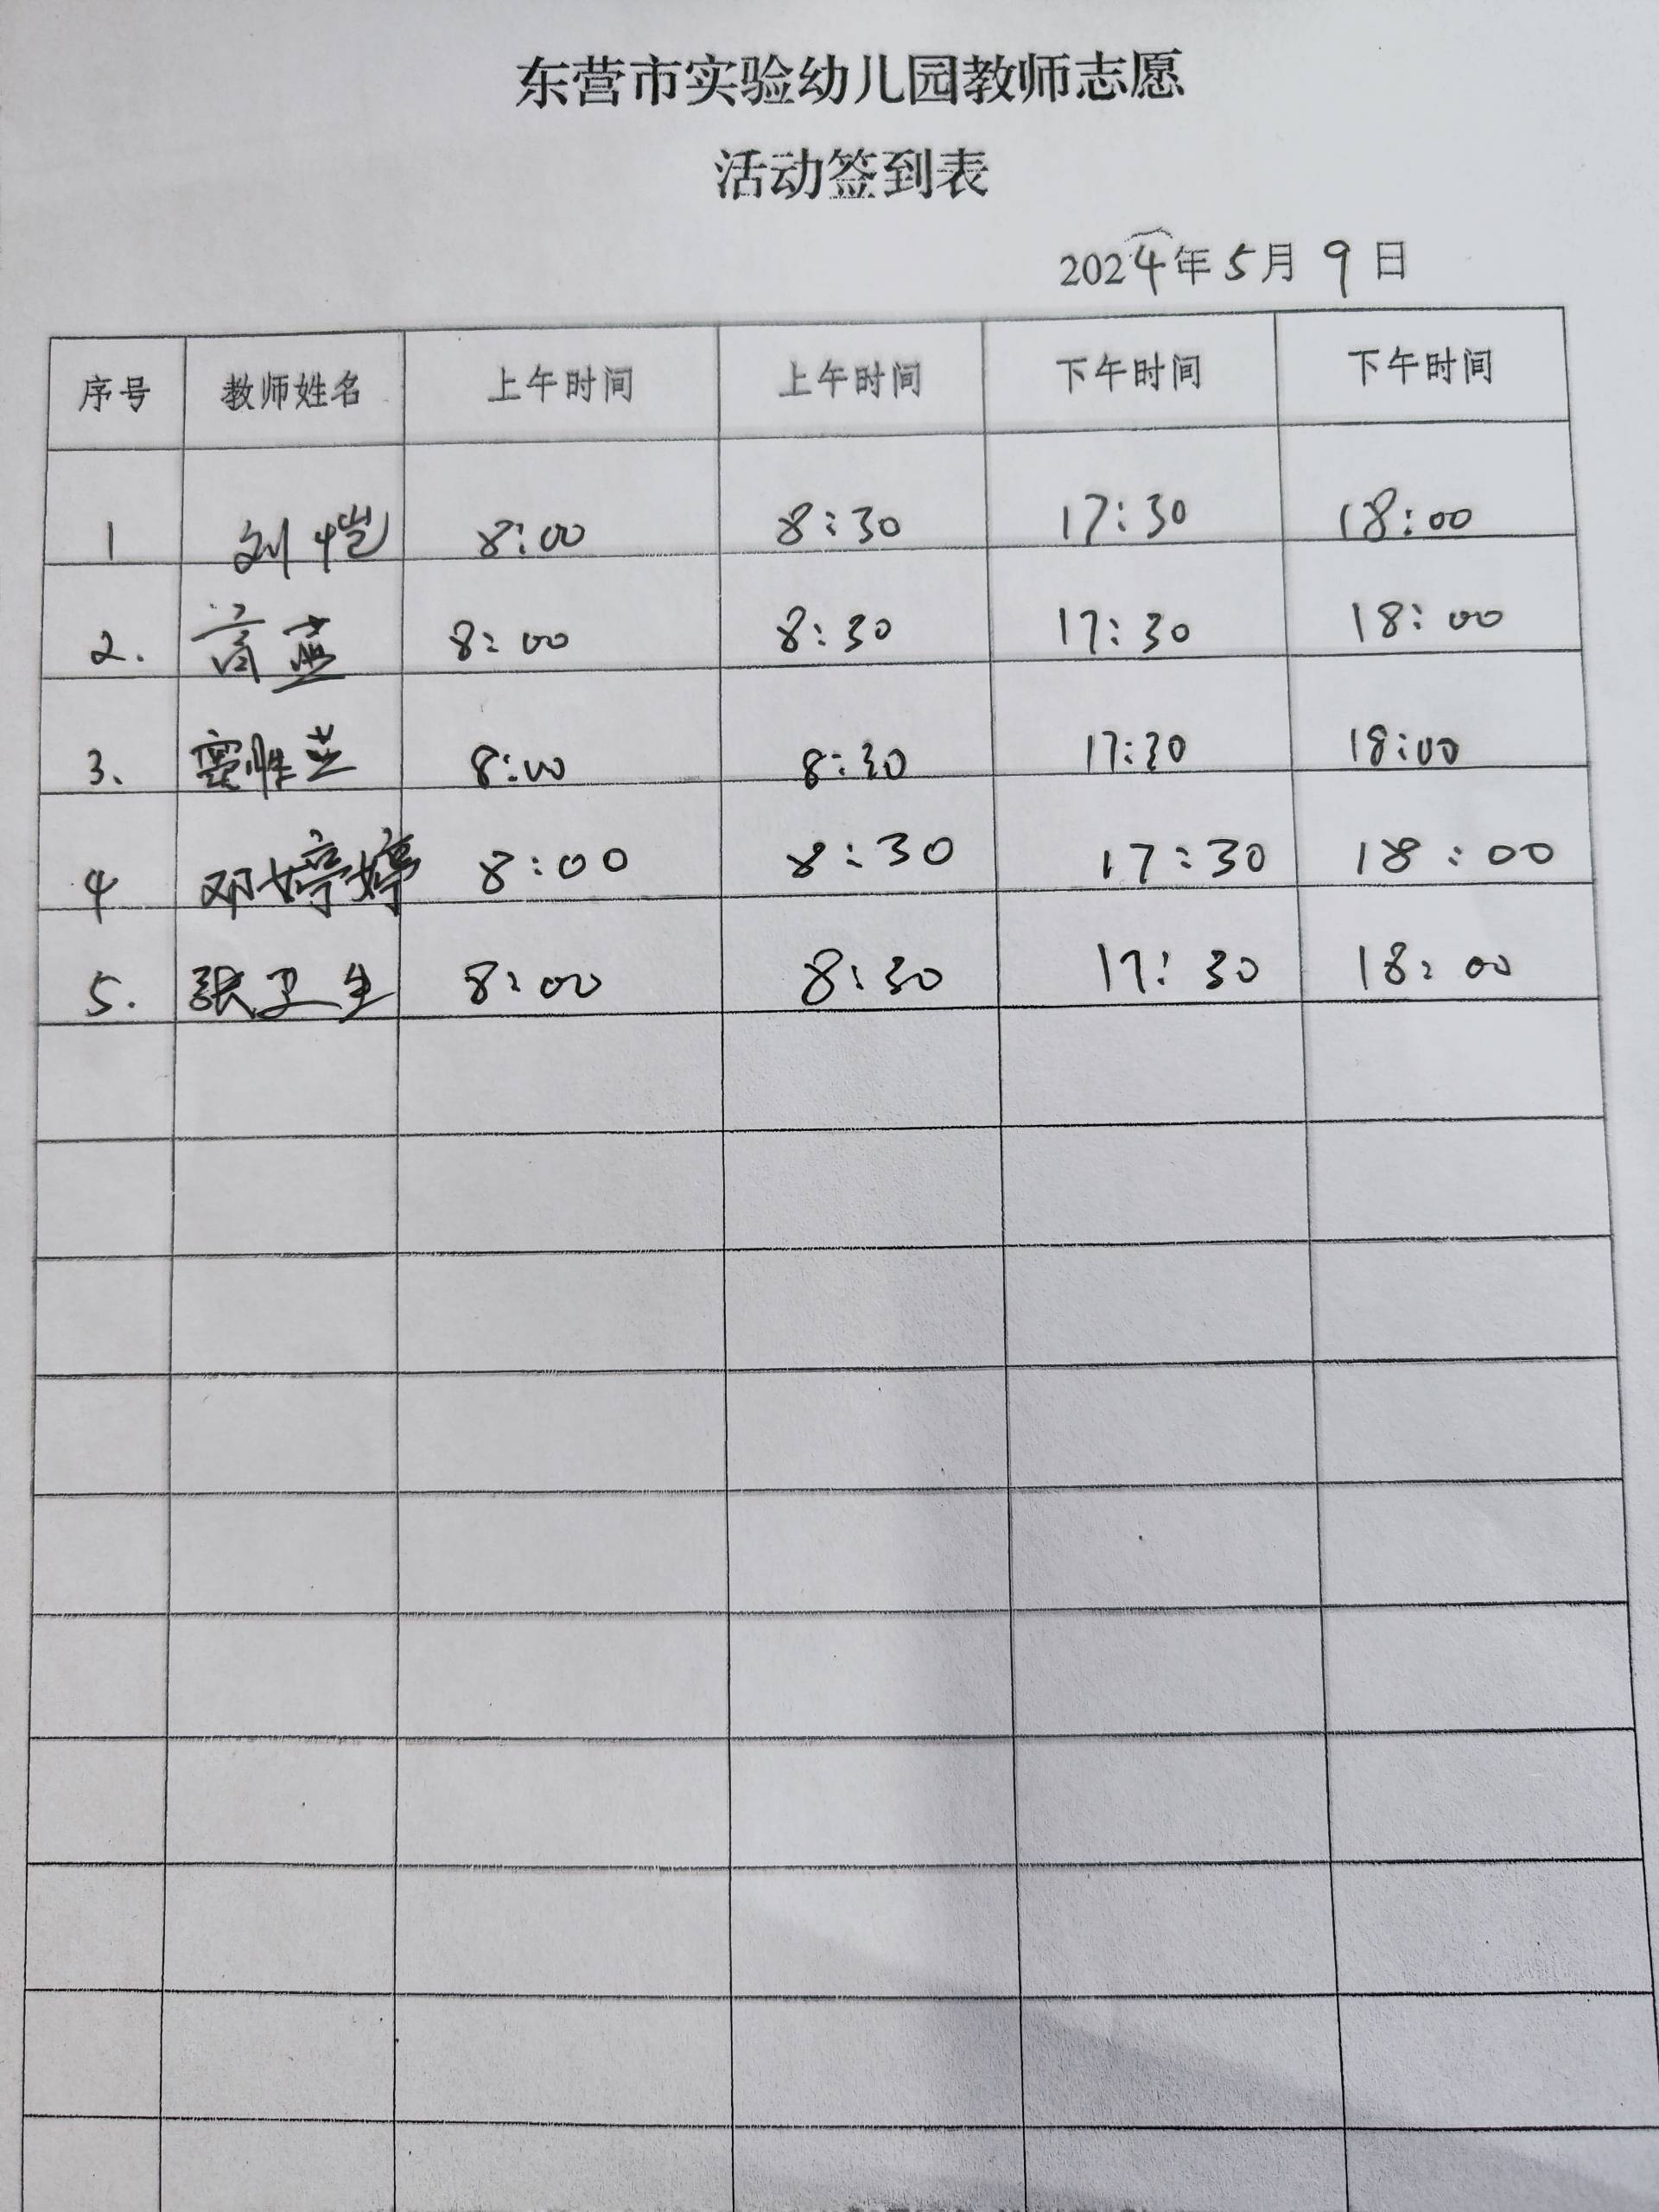 东营市实验幼儿园教师志愿
活动签到表
2024年5月9日
序号 教师姓名 上午时间 上午时间 下午时间 下午时间
1 刘恺 8:00 8:30 17:30 18:00
2. 高燕 8:00 8:30 17:30 18:00
3、 窦胜芝 8:00 8:30 17:30 18:00
4 邓婷婷 8:00 8:30 17:30 18:00
5. 张卫生 8:00 8:30 17:30 18:00